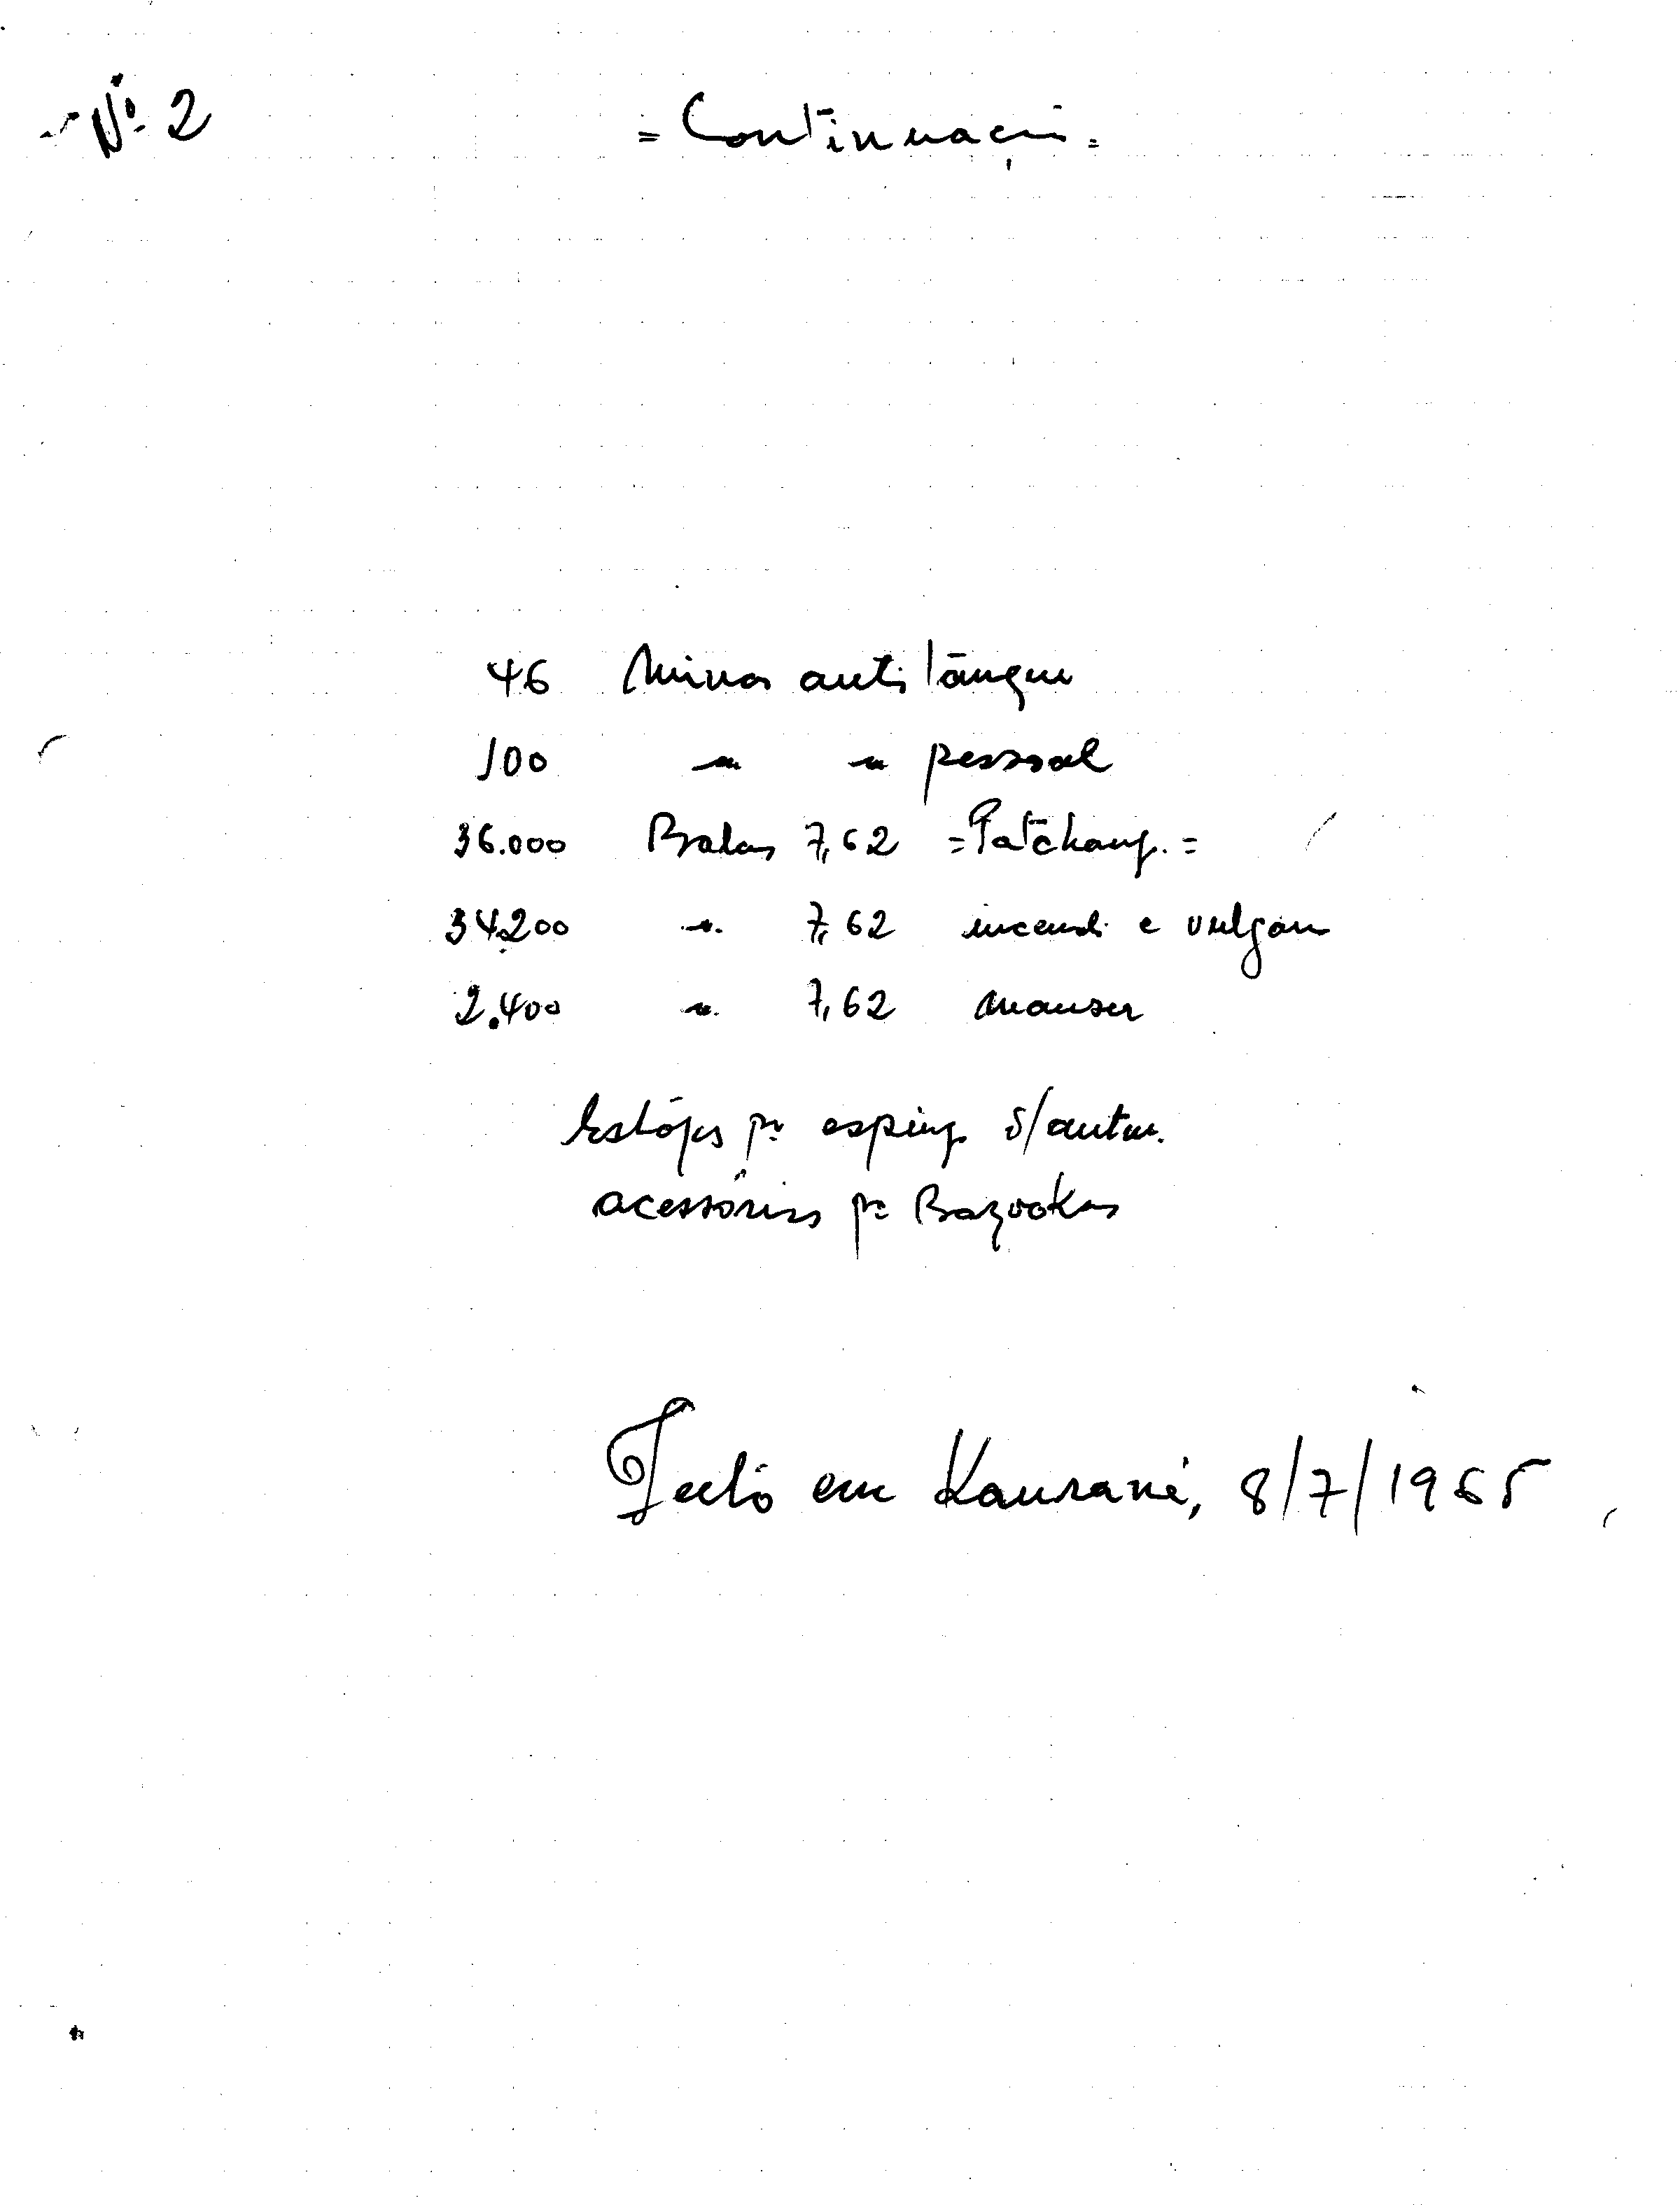 Nº 2
= Continuação =
46 Minas anti tânque
100 " " pessoal
36.000 Balas 7,62 = Patchang. =
34.200 " 7,62 incendi e vulgar
2.400 " 7,62 mauser
Estôjos pª esping. s/autom.
acessórios pª Bazookas
Feito em Kaurané, 8/7/1965